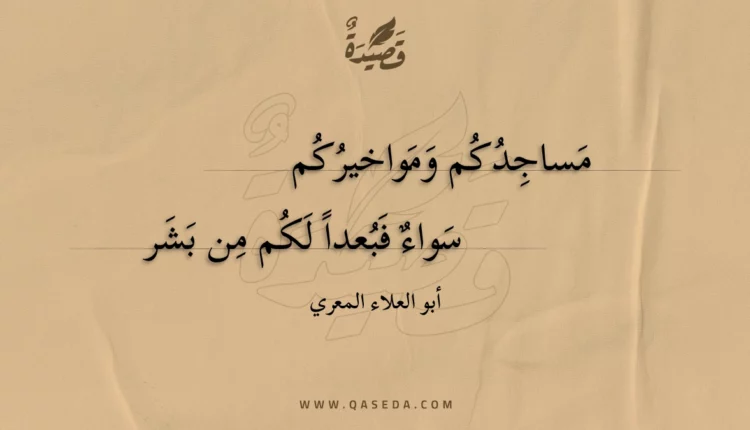 قَصِيْدَةٌ
مَساجِدُكُم وَمَواخيرُكُم
سَواءٌ فَبُعداً لَكُم مِن بَشَر
أبو العلاء المعري
WWW.QASEDA.COM